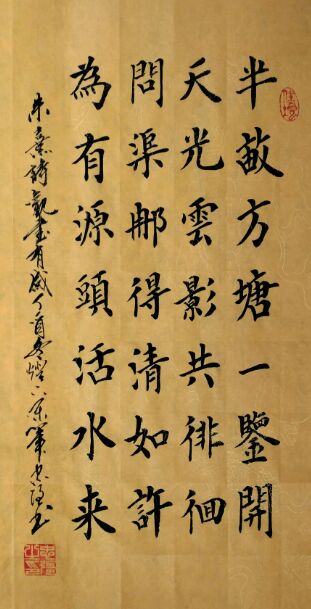 半畝方塘一鑒開
天光雲影共徘徊
問渠那得清如許
為有源頭活水来
朱熹詩觀書有感丁酉冬